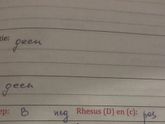 geen
geen
ep: B neg Rhesus (D) en (c): pos,